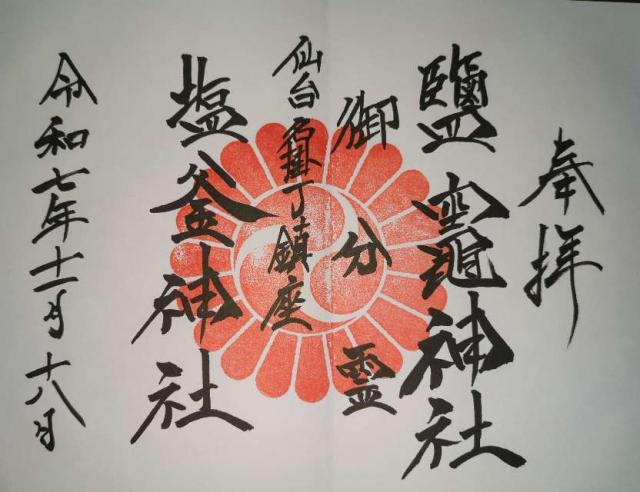 奉拝
鹽竈神社
御分霊
仙台名掛丁鎮座
塩釜神社
令和七年十一月十八日